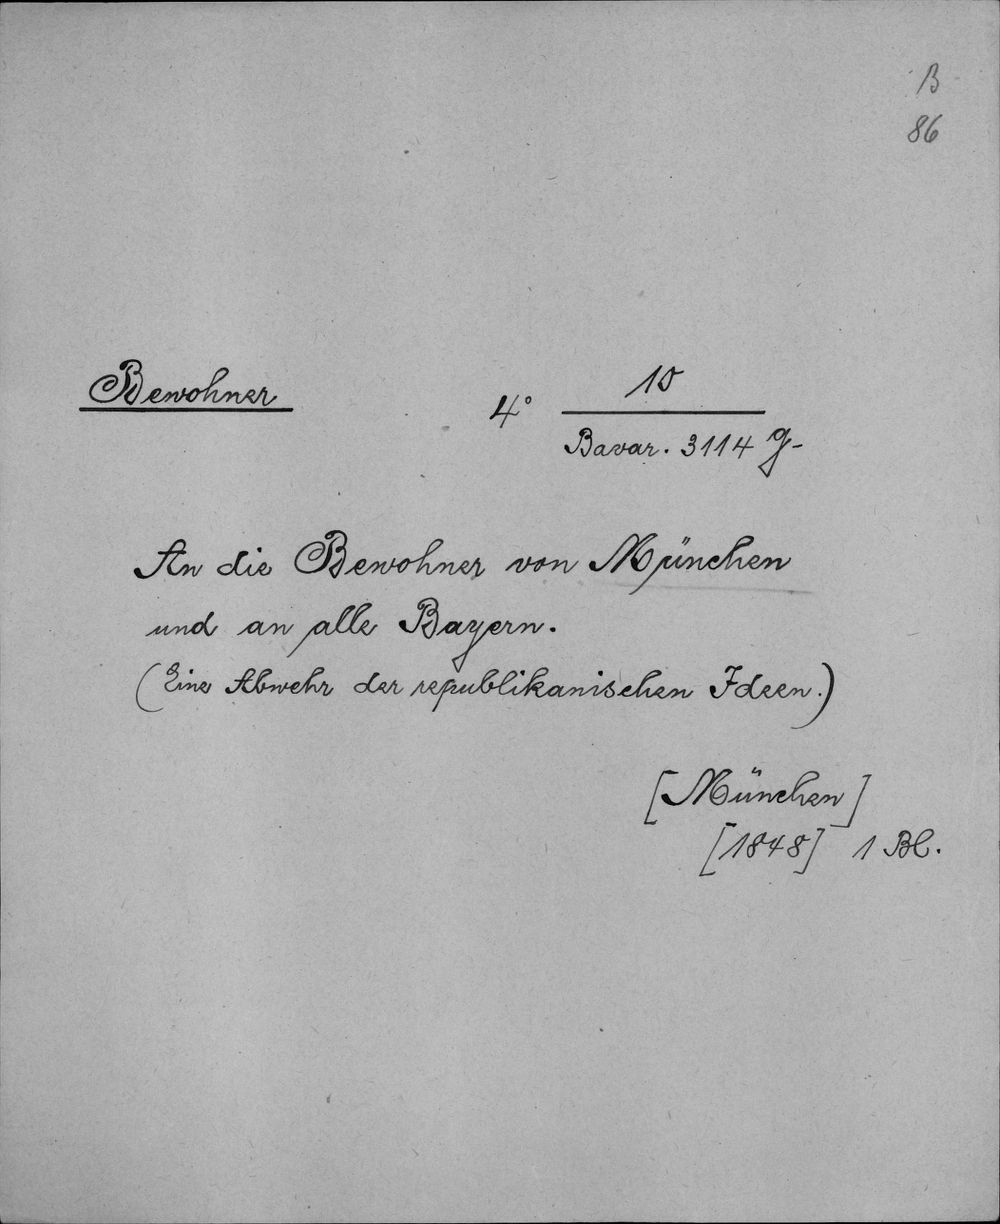 B
86
Bewohner
10
4° Bavar. 3114 g-
An die Bewohner von München
und an alle Bayern.
(Eine Abwehr der republikanischen Ideen.)
[München]
[1848] 1 Bl.